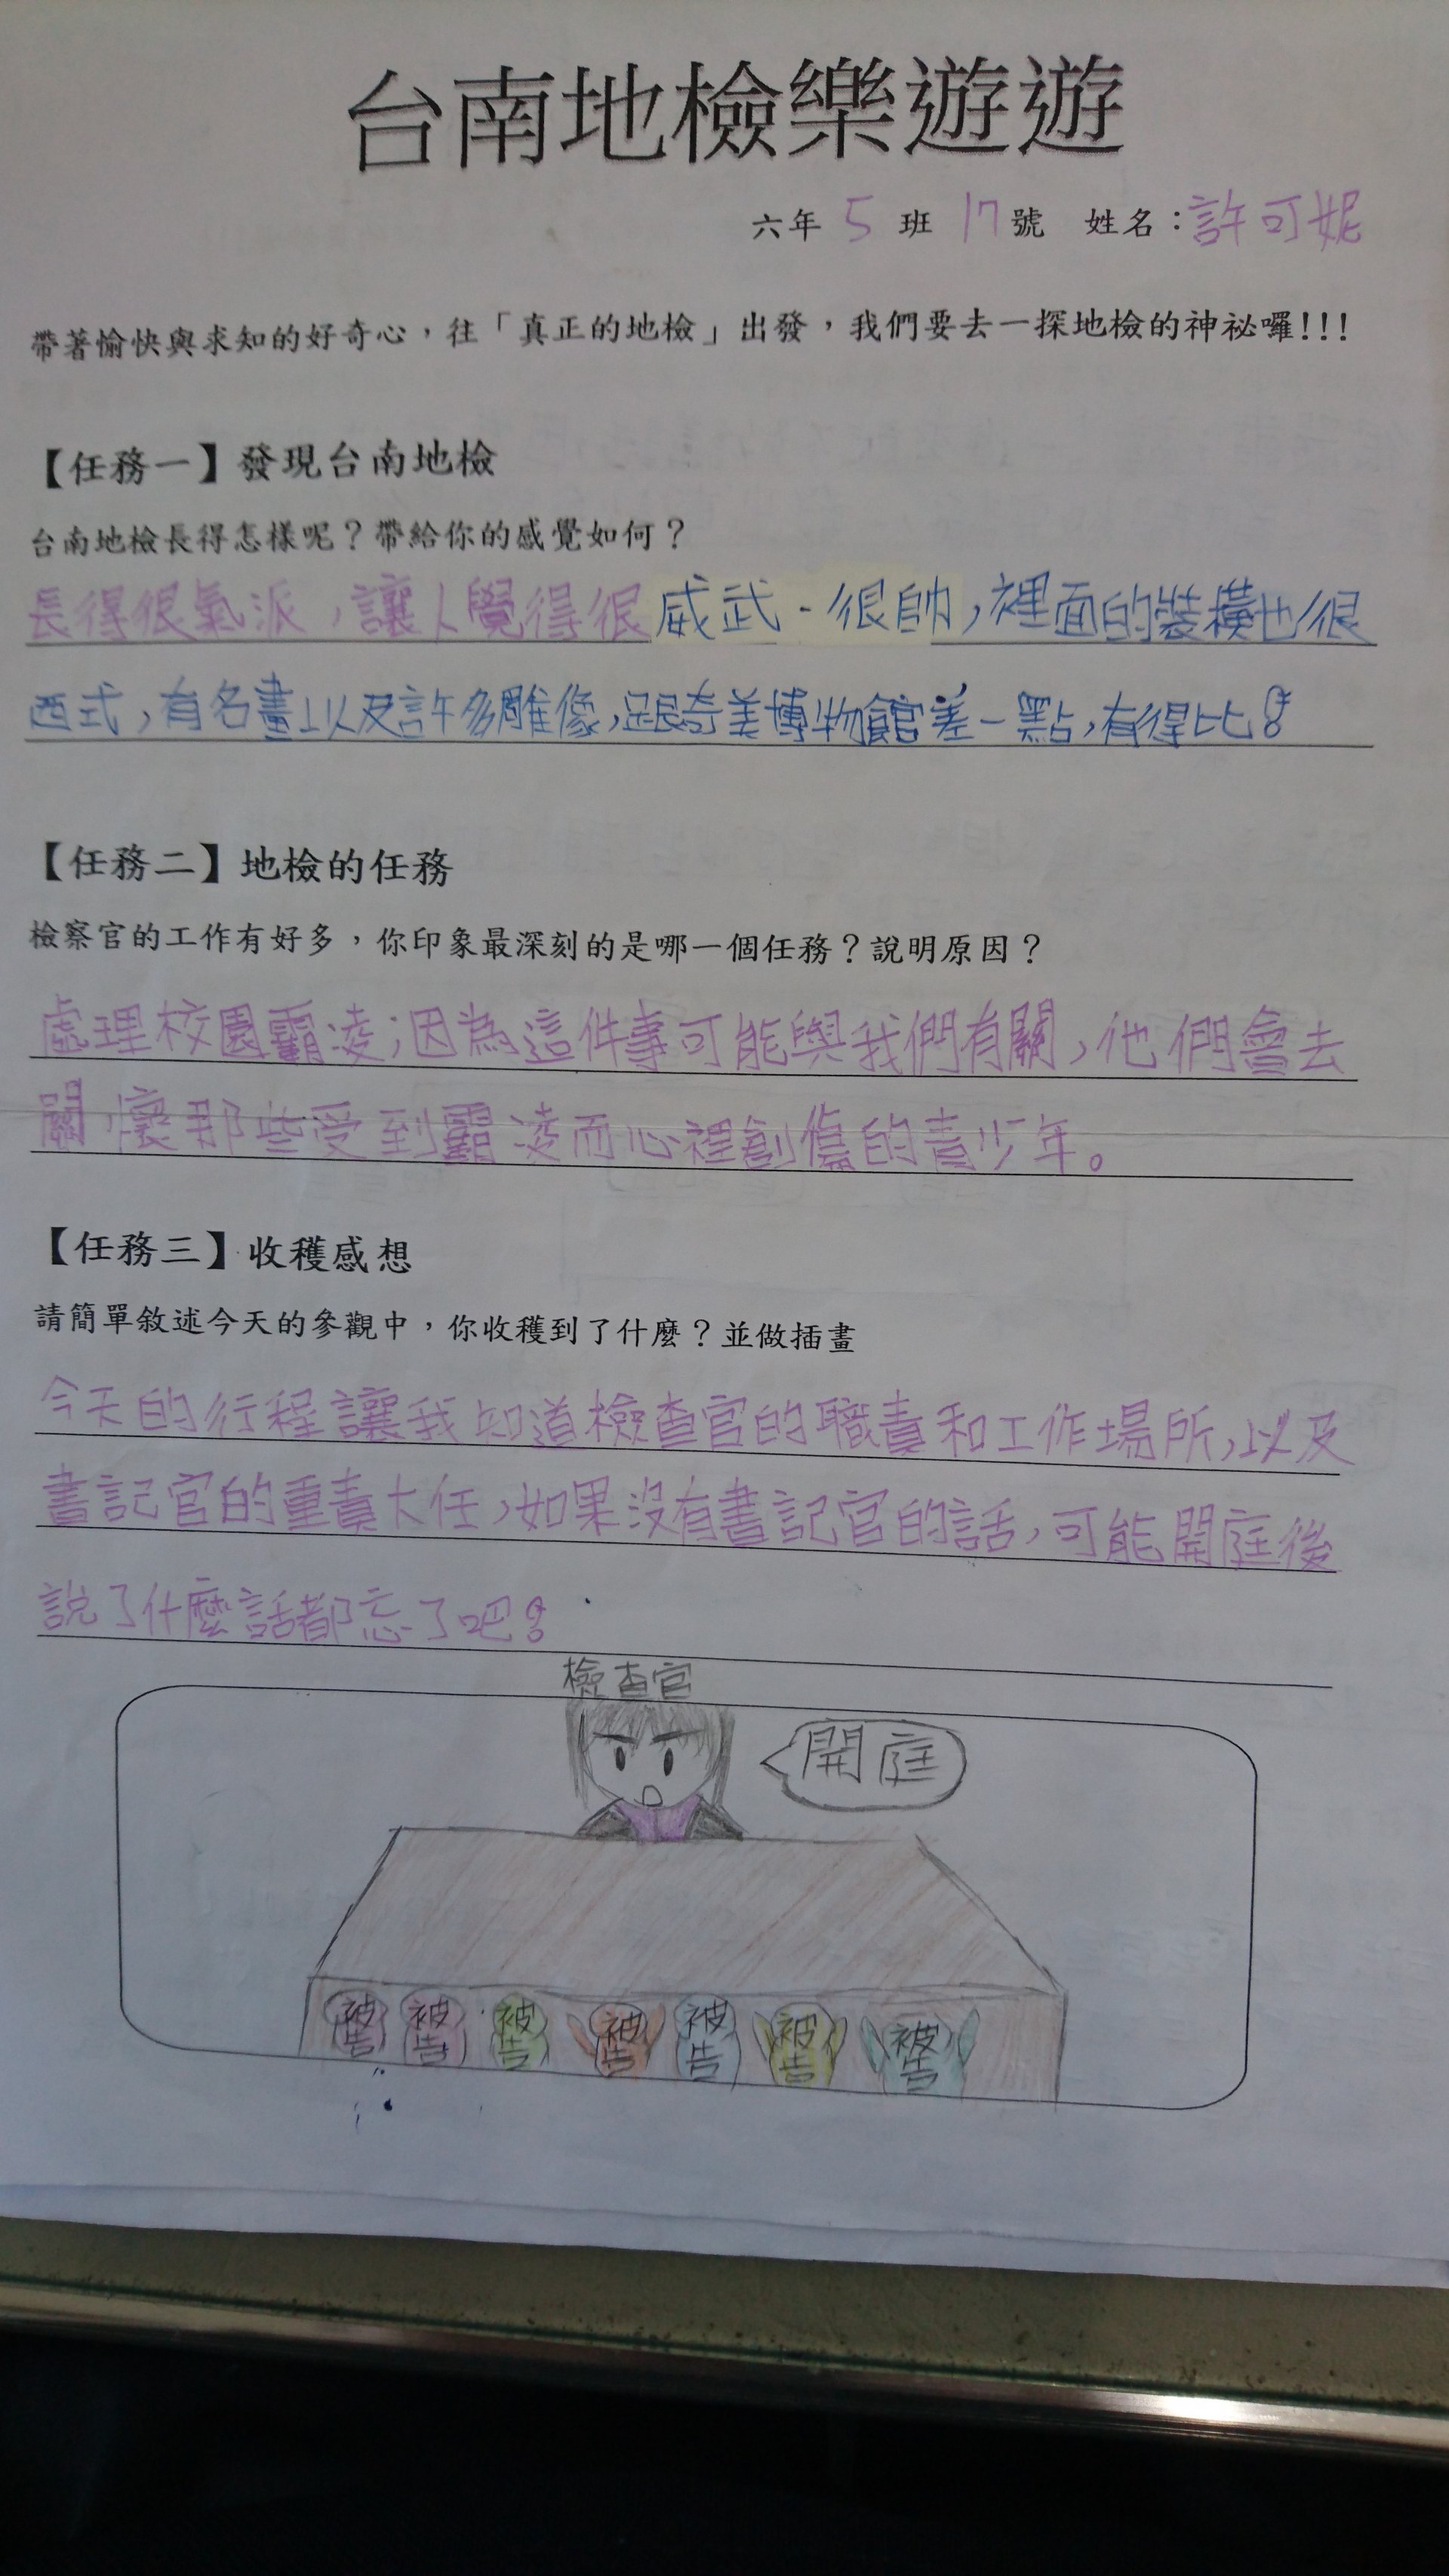 台南地檢樂遊遊
六年 5 班 17 號 姓名：許可妮
帶著愉快與求知的好奇心，往「真正的地檢」出發，我們要去一探地檢的神祕囉!!!
【任務一】發現台南地檢
台南地檢長得怎樣呢？帶給你的感覺如何？
長得很氣派，讓人覺得很威武、很帥，裡面的裝橫也很
西式，有名畫以及許多雕像，跟奇美博物館差一點，有得比！
【任務二】地檢的任務
檢察官的工作有好多，你印象最深刻的是哪一個任務？說明原因？
處理校園霸凌；因為這件事可能與我們有關，他們會去
關懷那些受到霸凌而心裡創傷的青少年。
【任務三】收穫感想
請簡單敘述今天的參觀中，你收穫到了什麼？並做插畫
今天的行程讓我知道檢查官的職責和工作場所，以及
書記官的重責大任，如果沒有書記官的話，可能開庭後
說了什麼話都忘了吧！
檢查官
開庭
被告 被告 被告 被告 被告 被告 被告